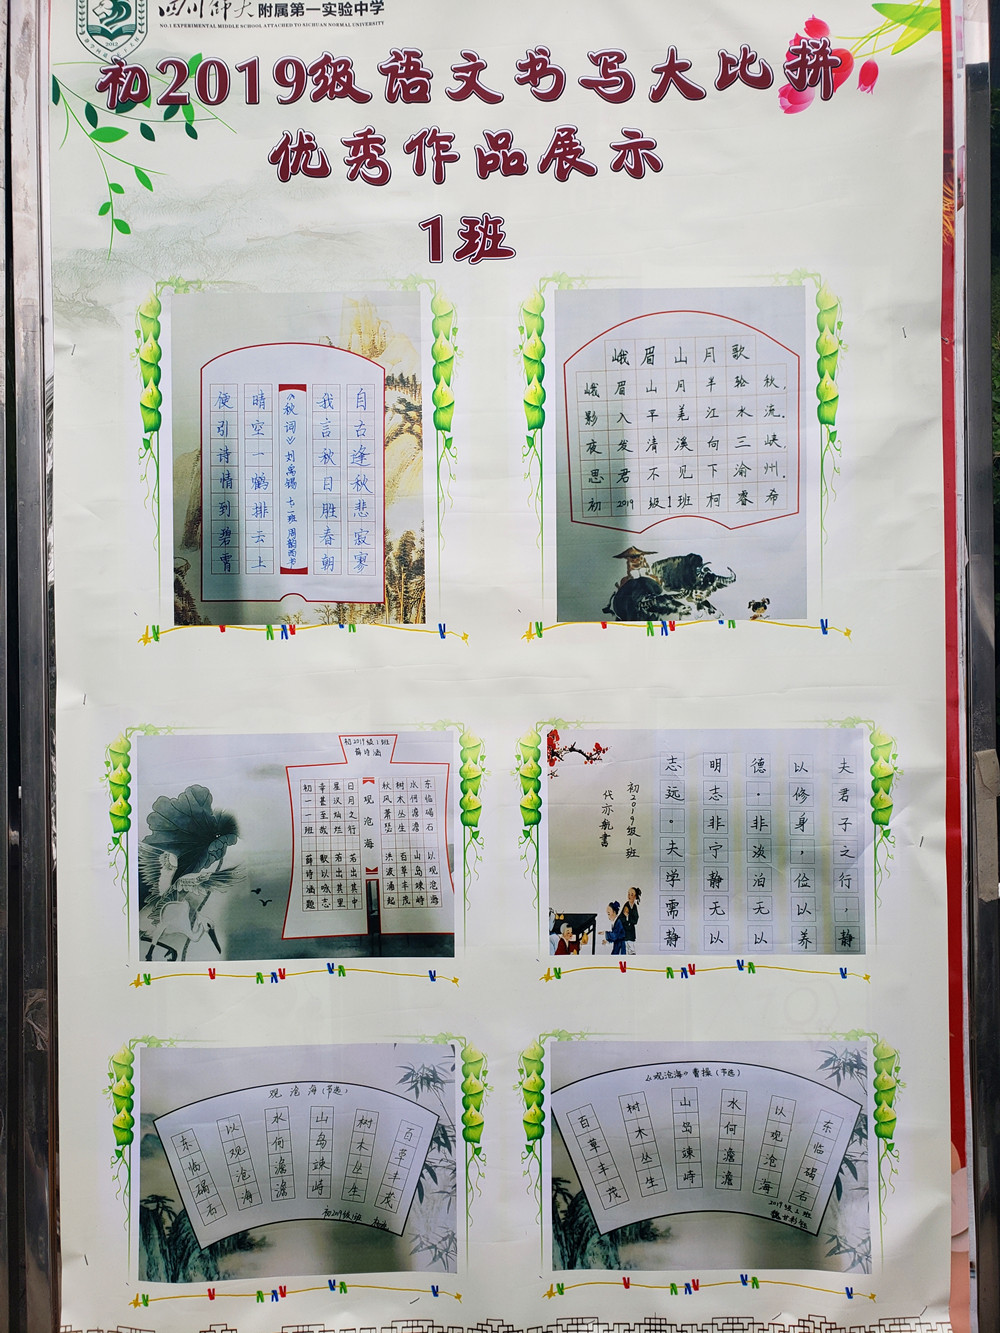 四川师大附属第一实验中学
NO.1 EXPERIMENTAL MIDDLE SCHOOL ATTACHED TO SICHUAN NORMAL UNIVERSITY
2012
初2019级语文书写大比拼
优秀作品展示
1班
自古逢秋悲寂寥
我言秋日胜春朝
《秋词》刘禹锡 七一班 周韵西书
晴空一鹤排云上
便引诗情到碧霄
峨眉山月歌
峨眉山月半轮秋，
影入平羌江水流。
夜发清溪向三峡，
思君不见下渝州。
初2019级1班柯睿希
初2019级1班
薛诗涵
东临碣石 以观沧海
水何澹澹 山岛竦峙
树木丛生 百草丰茂
秋风萧瑟 洪波涌起
观沧海
日月之行 若出其中
星汉灿烂 若出其里
幸甚至哉 歌以咏志
初一一班 薛诗涵题
夫君子之行，静
以修身，俭以养
德。非淡泊无以
明志非宁静无以
志远。夫学需静
初2019级1班
代亦航書
观沧海(节选)
东临碣石
以观沧海
水何澹澹
山岛竦峙
树木丛生
百草丰茂
初2019级1班
《观沧海》曹操(节选)
东临碣石
以观沧海
水何澹澹
山岛竦峙
树木丛生
百草丰茂
2019级1班